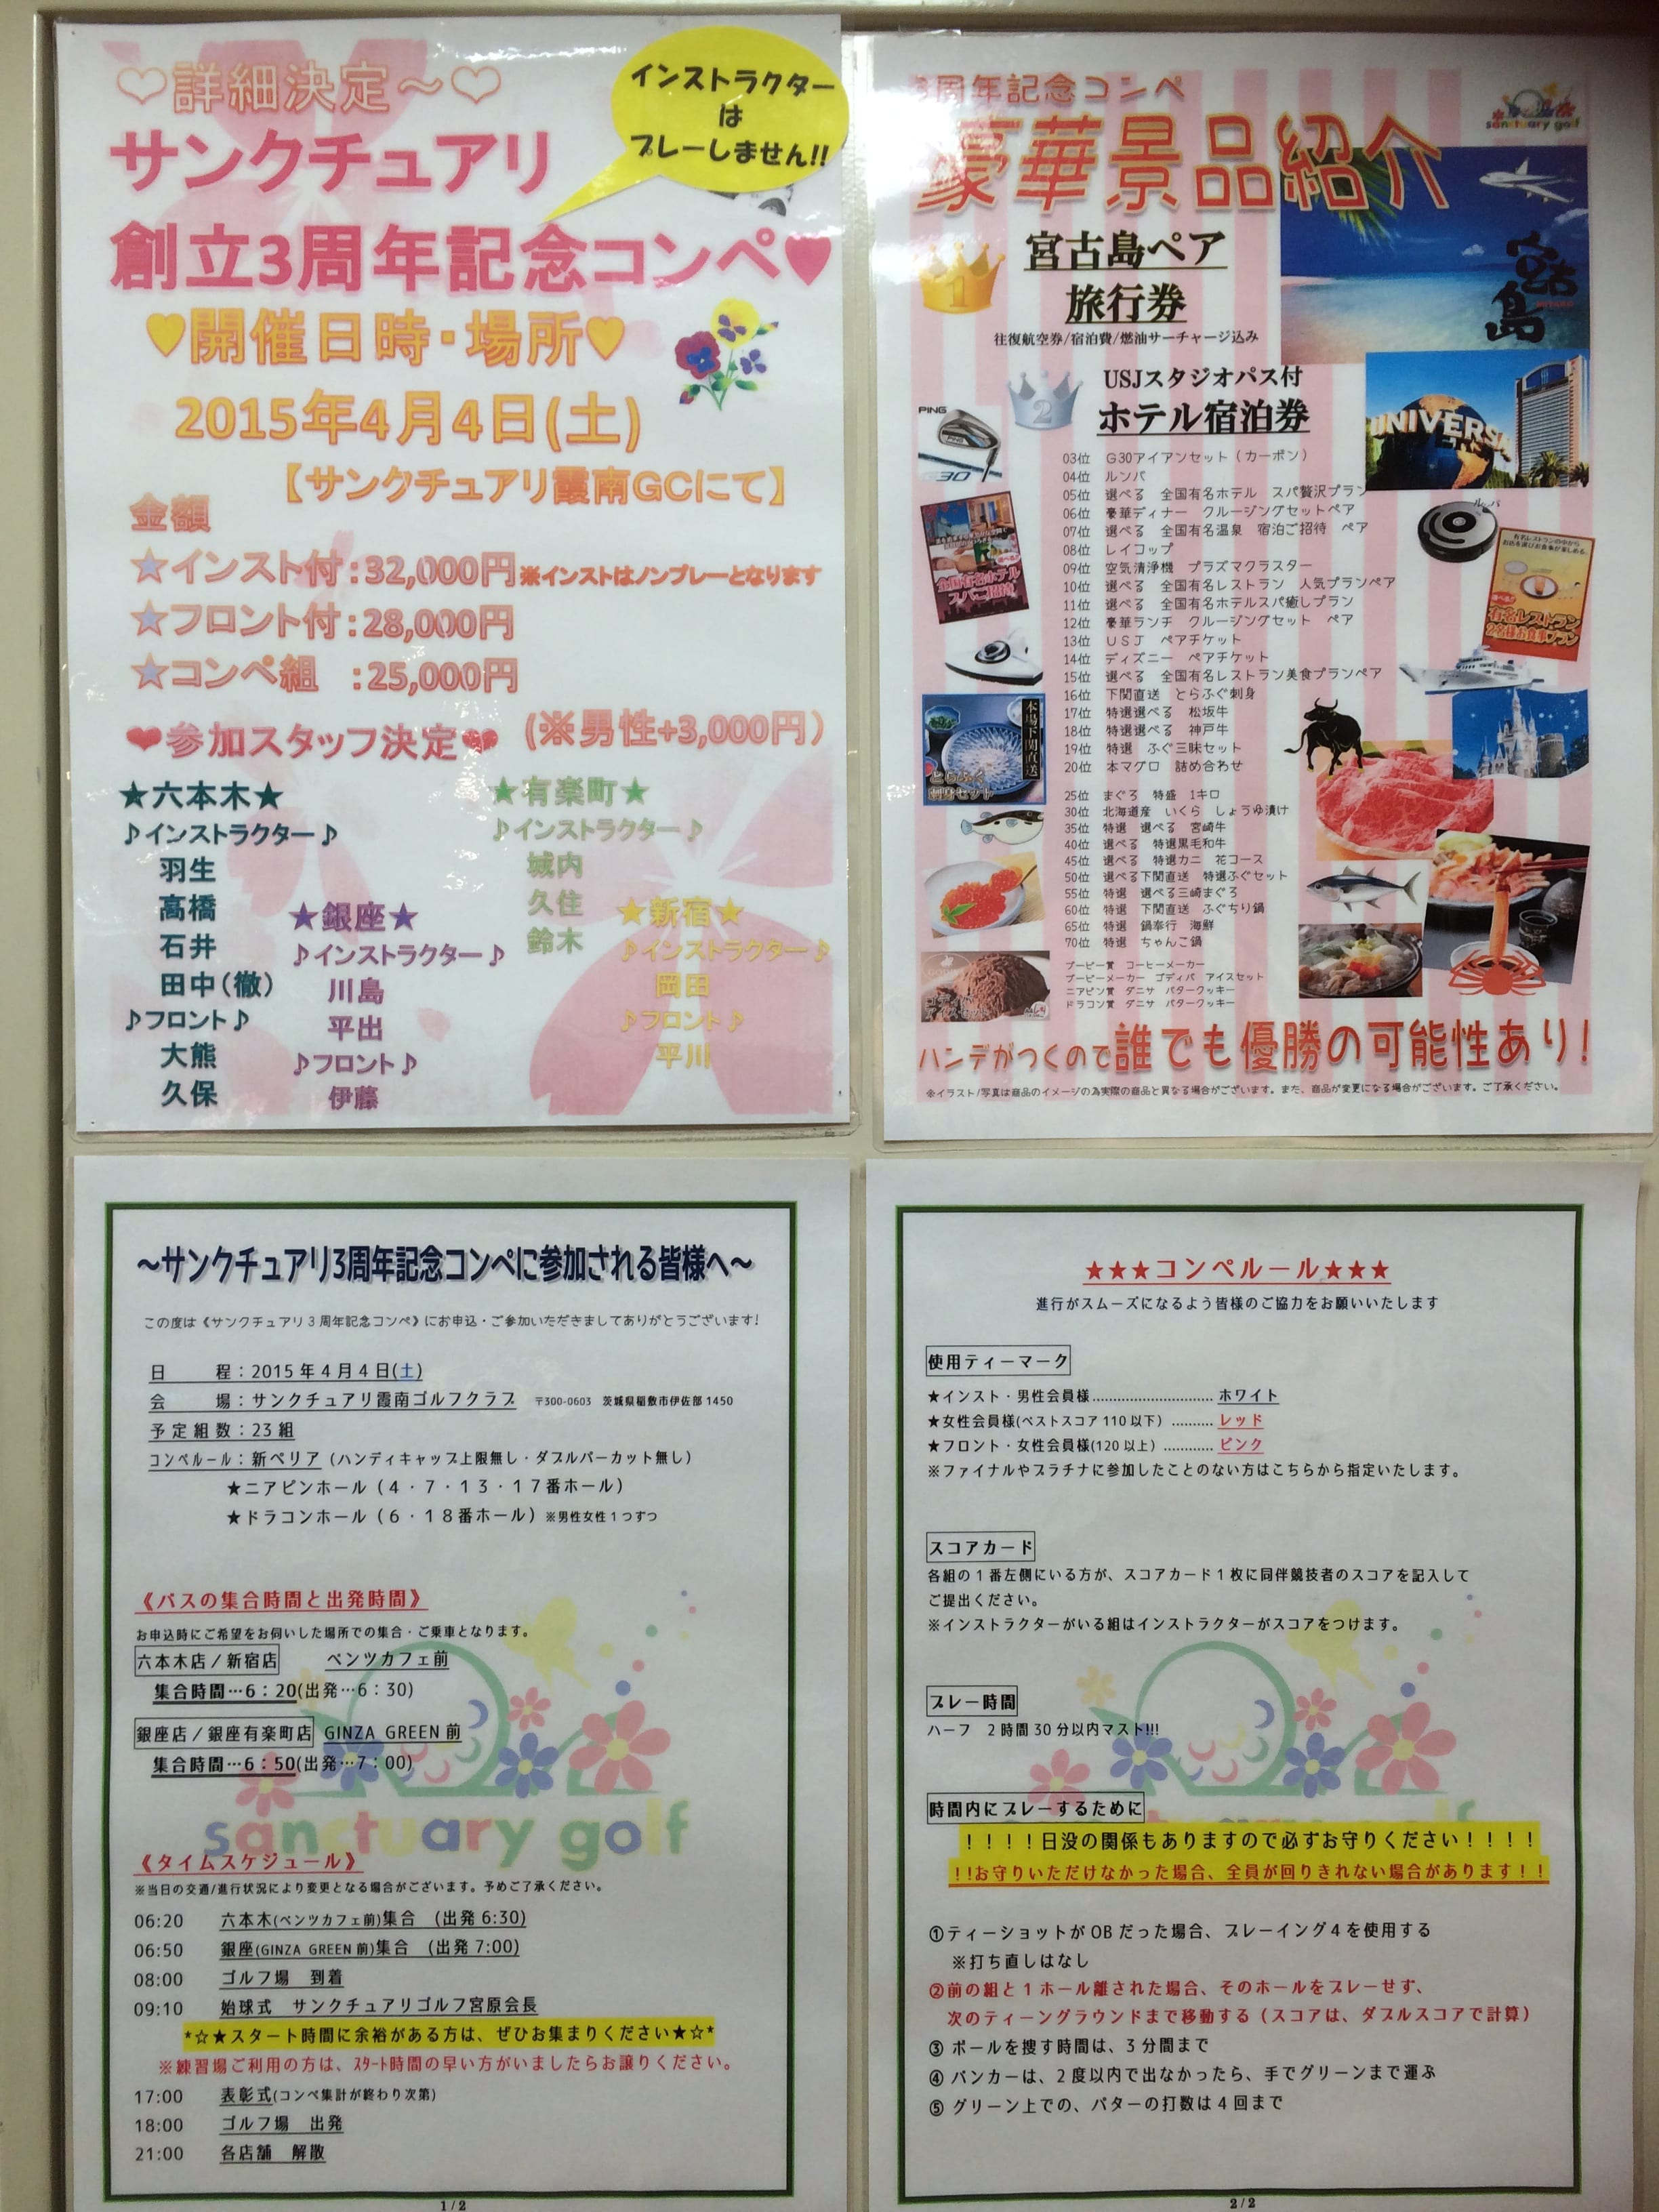 ♡詳細決定～♡
インストラクター
は
プレーしません!!
サンクチュアリ
創立3周年記念コンペ♥
♥開催日時・場所♥
2015年4月4日(土)
【サンクチュアリ霞南GCにて】
金額
★インスト付:32,000円※インストはノンプレーとなります
★フロント付:28,000円
★コンペ組 :25,000円
(※男性+3,000円)
❤参加スタッフ決定❤
★六本木★
♪インストラクター♪
羽生
高橋
石井
田中(徹)
♪フロント♪
大熊
久保
★銀座★
♪インストラクター♪
川島
平出
♪フロント♪
伊藤
★有楽町★
♪インストラクター♪
城内
久住
鈴木
★新宿★
♪インストラクター♪
岡田
♪フロント♪
平川
3周年記念コンペ
sanctuary golf
豪華景品紹介
1
宮古島ペア
旅行券
往復航空券/宿泊費/燃油サーチャージ込み
宮古島
2
USJスタジオパス付
ホテル宿泊券
UNIVERSA
PING
G30
03位 G30アイアンセット(カーボン)
04位 ルンバ
05位 選べる 全国有名ホテル スパ贅沢プラン
06位 豪華ディナー クルージングセットペア
07位 選べる 全国有名温泉 宿泊ご招待 ペア
08位 レイコップ
09位 空気清浄機 プラズマクラスター
10位 選べる 全国有名レストラン 人気プランペア
11位 選べる 全国有名ホテルスパ癒しプラン
12位 豪華ランチ クルージングセット ペア
13位 USJ ペアチケット
14位 ディズニー ペアチケット
15位 選べる 全国有名レストラン美食プランペア
16位 下関直送 とらふぐ刺身
17位 特選選べる 松坂牛
18位 特選選べる 神戸牛
19位 特選 ふぐ三昧セット
20位 本マグロ 詰め合わせ
25位 まぐろ 特盛 1キロ
30位 北海道産 いくら しょうゆ漬け
35位 特選 選べる 宮崎牛
40位 選べる 特選黒毛和牛
45位 選べる 特選カニ 花コース
50位 選べる下関直送 特選ふぐセット
55位 特選 選べる三崎まぐろ
60位 特選 下関直送 ふぐちり鍋
65位 特選 鍋奉行 海鮮
70位 特選 ちゃんこ鍋
ブービー賞 コーヒーメーカー
ブービーメーカー ゴディバ アイスセット
ニアピン賞 ダニサ バタークッキー
ドラコン賞 ダニサ バタークッキー
全国有名ホテル
スパご招待
有名レストラン
2名様お食事プラン
本場下関直送
とらふぐ
刺身セット
ハンデがつくので誰でも優勝の可能性あり!
※イラスト/写真は商品のイメージの為実際の商品と異なる場合がございます。また、商品が変更になる場合がございます。ご了承ください。
～サンクチュアリ3周年記念コンペに参加される皆様へ～
この度は《サンクチュアリ3周年記念コンペ》にお申込・ご参加いただきましてありがとうございます!
日 程:2015年4月4日(土)
会 場:サンクチュアリ霞南ゴルフクラブ 〒300-0603 茨城県稲敷市伊佐部1450
予定組数:23組
コンペルール:新ペリア(ハンディキャップ上限無し・ダブルパーカット無し)
★ニアピンホール(4・7・13・17番ホール)
★ドラコンホール(6・18番ホール)※男性女性1つずつ
《バスの集合時間と出発時間》
お申込時にご希望をお伺いした場所での集合・ご乗車となります。
六本木店/新宿店 ベンツカフェ前
集合時間…6:20(出発…6:30)
銀座店/銀座有楽町店 GINZA GREEN前
集合時間…6:50(出発…7:00)
sanctuary golf
《タイムスケジュール》
※当日の交通/進行状況により変更となる場合がございます。予めご了承ください。
06:20 六本木(ベンツカフェ前)集合 (出発6:30)
06:50 銀座(GINZA GREEN前)集合 (出発7:00)
08:00 ゴルフ場 到着
09:10 始球式 サンクチュアリゴルフ宮原会長
*☆★スタート時間に余裕がある方は、ぜひお集まりください★☆*
※練習場ご利用の方は、スタート時間の早い方がいましたらお譲りください。
17:00 表彰式(コンペ集計が終わり次第)
18:00 ゴルフ場 出発
21:00 各店舗 解散
1/2
★★★コンペルール★★★
進行がスムーズになるよう皆様のご協力をお願いいたします
使用ティーマーク
★インスト・男性会員様………………………… ホワイト
★女性会員様(ベストスコア110以下) ………. レッド
★フロント・女性会員様(120以上) ………… ピンク
※ファイナルやプラチナに参加したことのない方はこちらから指定いたします。
スコアカード
各組の1番左側にいる方が、スコアカード1枚に同伴競技者のスコアを記入して
ご提出ください。
※インストラクターがいる組はインストラクターがスコアをつけます。
プレー時間
ハーフ 2時間30分以内マスト!!!
時間内にプレーするために
!!!!日没の関係もありますので必ずお守りください!!!!
!!お守りいただけなかった場合、全員が回りきれない場合があります!!
①ティーショットがOBだった場合、プレーイング4を使用する
※打ち直しはなし
②前の組と1ホール離された場合、そのホールをプレーせず、
次のティーングラウンドまで移動する(スコアは、ダブルスコアで計算)
③ ボールを捜す時間は、3分間まで
④ バンカーは、2度以内で出なかったら、手でグリーンまで運ぶ
⑤ グリーン上での、パターの打数は4回まで
2/2